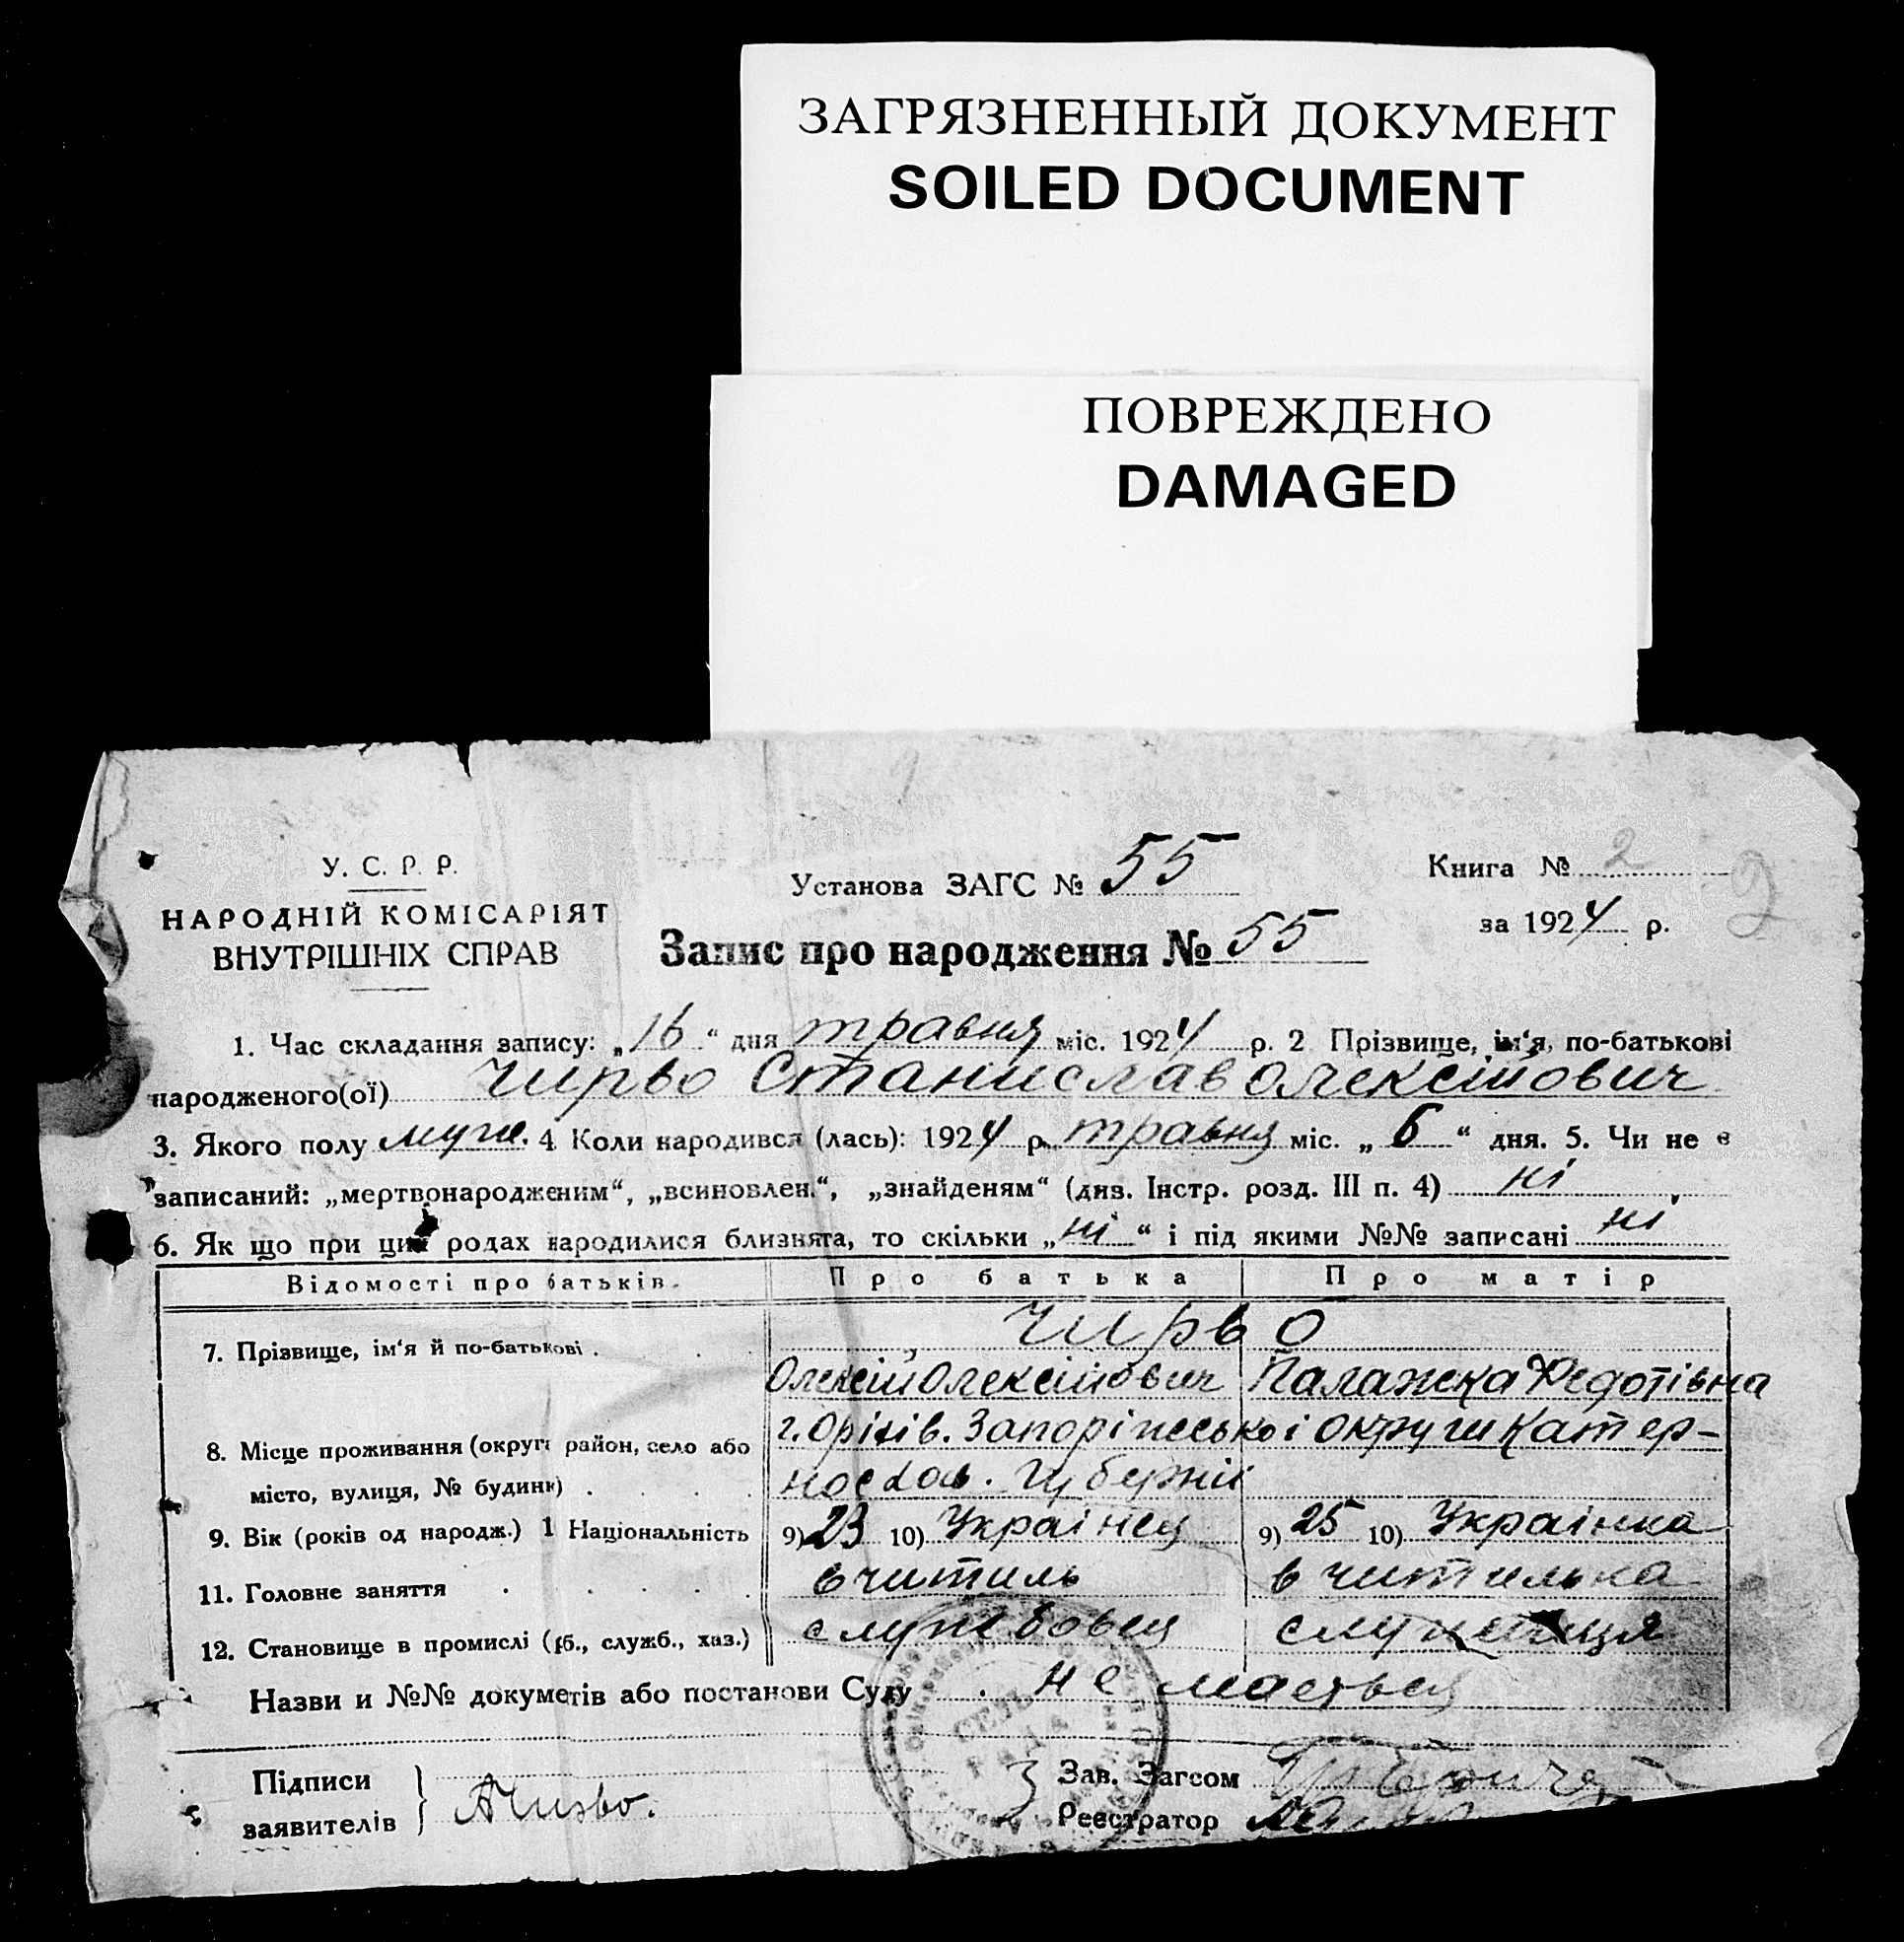 ЗАГРЯЗНЕННЫЙ ДОКУМЕНТ
SOILED DOCUMENT
ПОВРЕЖДЕНО
DAMAGED
У. С. Р. Р.
НАРОДНІЙ КОМІСАРІЯТ
ВНУТРІШНІХ СПРАВ
Установа ЗАГС № 55
Запис про народження № 55
Книга № 2
за 1924 р.
2
1. Час складання запису: „16“ дня травня міс. 1924 р. 2 Прізвище, ім‘я, по-батькові
народженого(ої) Чирво Станислав Олексійович
3. Якого полу муж. 4 Коли народився (лась): 1924 р. травня міс. „6“ дня. 5. Чи не є
записаний: „мертвонародженим“, „всиновлен.“, „знайденям“ (див. Інстр. розд. III п. 4) ні
6. Як що при цих родах народилися близнята, то скільки „ні“ і під якими №№ записані ні
Відомості про батьків.
Про батька
Про матір
7. Прізвище, ім‘я й по-батькові
Чирво
Олексій Олексійович Палажка Федотівна
8. Місце проживання (округа район, село або
місто, вулиця, № будинк)
г. Оріхів. Запоріжської округи Катер-
нослав. Губернії
9. Вік (років од народж.) 1 Національність
9) 23 10) Українец 9) 25 10) Українка
11. Головне заняття вчитиль вчителька
12. Становище в промислі (рб., служб., хаз.) службовец
Назви и №№ докуметів або постанови Суду не мається
Підписи
заявителів
АЧирво.
Зав. Загсом
Реєстратор